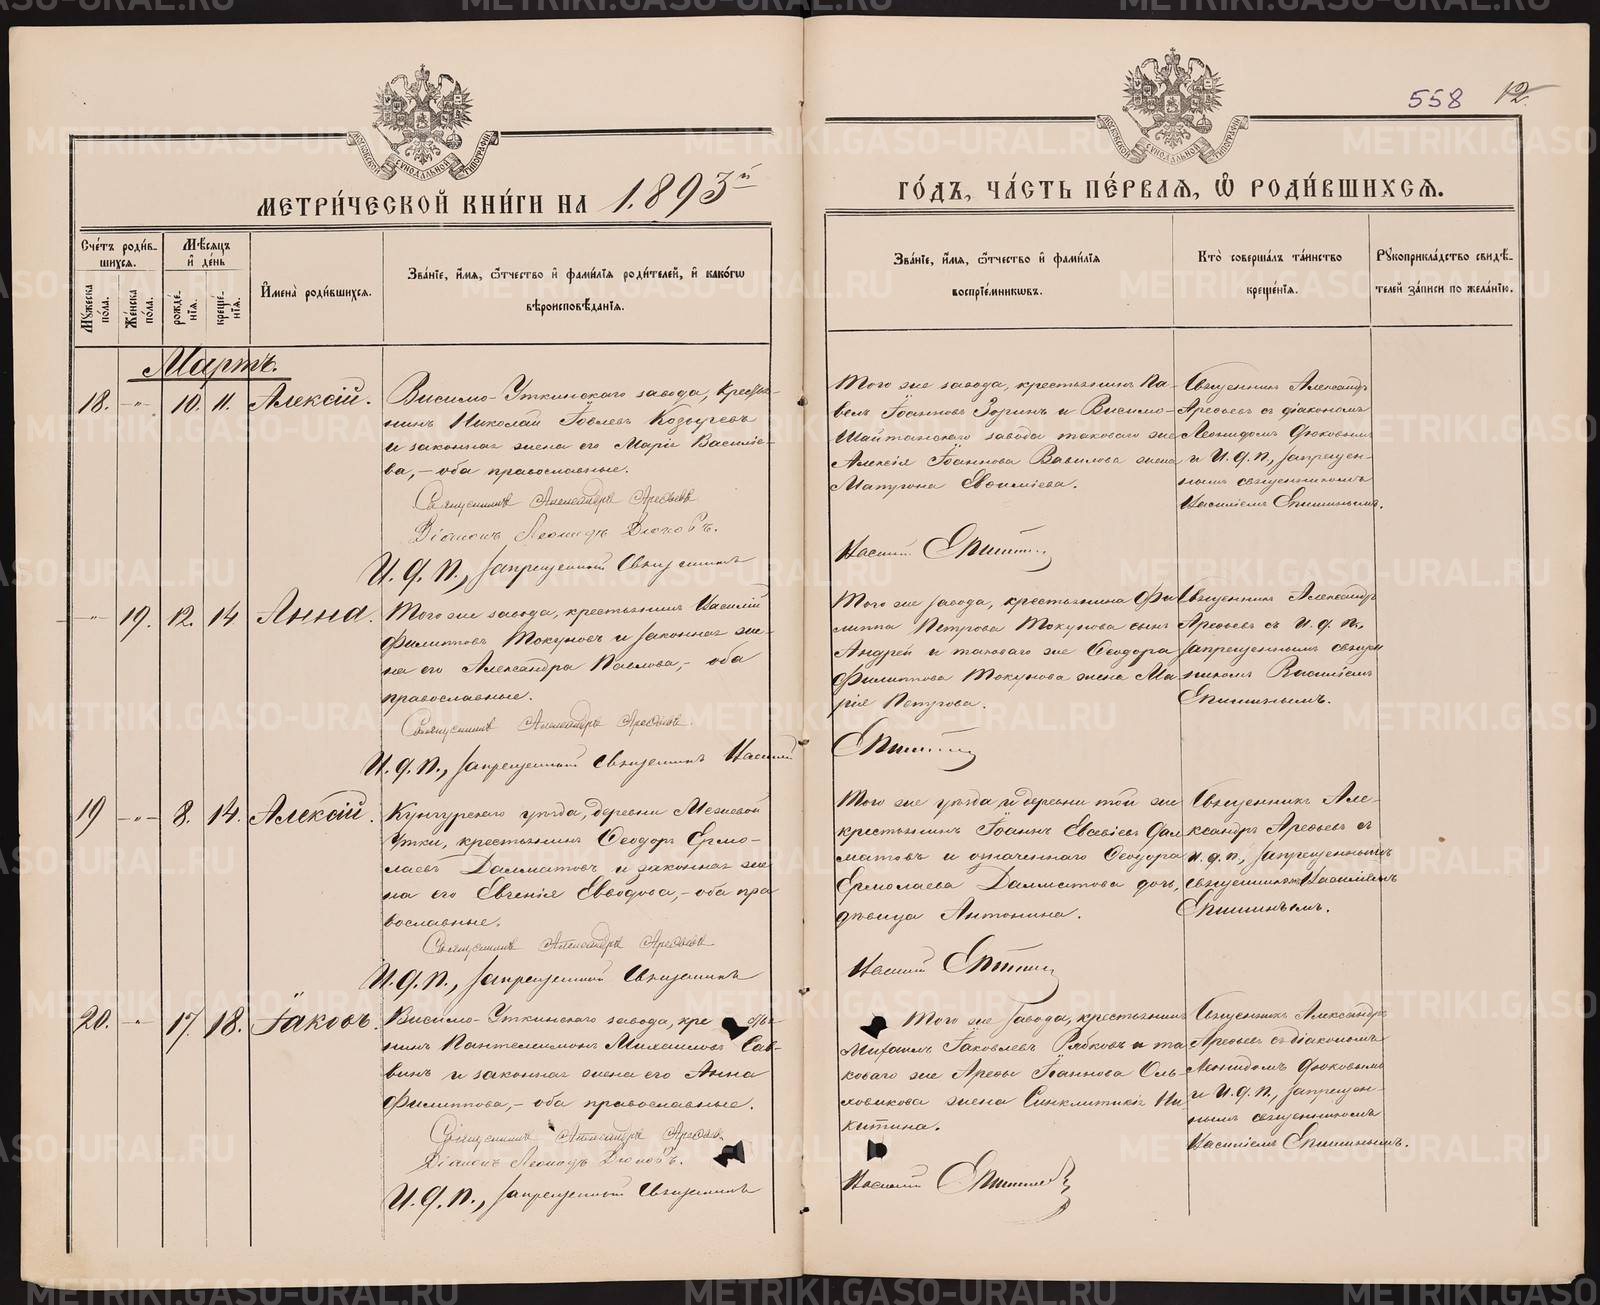 558 12.
МОСКОВСКОЙ СѴНОДАЛЬНОЙ ТИПОГРАФІИ
МОСКОВСКОЙ СѴНОДАЛЬНОЙ ТИПОГРАФІИ
МЕТРИ́ЧЕСКОЙ КНИ́ГИ НА 1893й
ГО́ДЪ, ЧА́СТЬ ПЕ́РВАЯ, Ѽ РОДИ́ВШИХСЯ.
Сче́тъ роди́в-
шихся.
Мꙋ́жеска по́ла.
Же́нска по́ла.
Мѣ́сяцъ и҆ де́нь
рожде́-нія.
креще́-нія.
И҆мена̀ роди́вшихся.
Зва́нїе, и҆́мя, ѻ҆́тчество и҆ фами́лїя роди́телей, и҆ како́гѡ
вѣроисповѣ́данїя.
Зва́нїе, и҆́мя, ѻ҆́тчество и҆ фами́лїя
воспрїе́мниковъ.
Кто̀ соверша́лъ та́инство
креще́нїя.
Рꙋкоприкла́дство свидѣ́-
телей за́писи по жела́нїю.
Мартъ.
18. -"- 10. 11. Алексій.
Висимо-Уткинскаго завода, крестья-
нинъ Николай Іовлевъ Козыревъ
и законная жена его Марія Василье-
ва, - оба православные.
Священникъ Александръ Арефьевъ
Діаконъ Леонидъ Дюковъ.
И. д. п., запрещенный Священникъ
Того же завода, крестьянинъ Па-
велъ Іоанновъ Зоринъ и Висимо-
Шайтанскаго завода таковаго же
Алексія Іоаннова Вавилова жена
Матрона Евфимиева.
Василій Епишинъ
Священникъ Александръ
Арефьевъ съ діакономъ
Леонидомъ Дюковымъ
и И. д. п., запрещен-
нымъ священникомъ
Василіемъ Епишинымъ.
-"- 19. 12. 14 Анна.
Того же завода, крестьянинъ Василій
Филипповъ Токуновъ и законная же-
на его Александра Павлова, - оба
православные.
Священникъ Александръ Арефьевъ
И. д. п., запрещенный Священникъ Василій
Того же завода, крестьянина Фи-
липпа Петрова Токунова сынъ
Андрей и таковаго же Ѳеодора
Филиппова Токунова жена Ма-
рія Петрова.
Епишинъ
Священникъ Александръ
Арефьевъ съ И. д. п.,
запрещеннымъ священ-
никомъ Василіемъ
Епишинымъ.
19 -"- 8. 14. Алексій.
Кунгурскаго уѣзда, деревни Межевой
Утки, крестьянинъ Ѳеодоръ Ермо-
лаевъ Далматовъ и законная же-
на его Евгенія Евводова, - оба пра
вославные.
Священникъ Александръ Арефьевъ
И. д. п., запрещенный Священникъ
Того же уѣзда и деревни той же
крестьянинъ Іоаннъ Евсевіевъ Дал
матовъ и означеннаго Ѳеодора
Ермолаева Далматова дочь,
дѣвица Антонина.
Василій Епишинъ
Священникъ Але-
ксандръ Арефьевъ съ
и. д. п., запрещеннымъ
священникомъ Василіемъ
Епишинымъ.
20. -"- 17. 18. Іаковъ.
Висимо-Уткинскаго завода, кре стья-
нинъ Пантелеимонъ Михаиловъ Сав-
винъ и законная жена его Анна
Филиппова, - оба православные.
Священникъ Александръ Арефьевъ
Діаконъ Леонидъ Дюковъ.
И. д. п., запрещенный Священникъ
Того же завода, крестьянинъ
Михаилъ Іаковлевъ Рябковъ и та
коваго же Арефы Іоаннова Оль-
ховикова жена Синклитикія Ни
китина.
Василій Епишинъ
Священникъ Александръ
Арефьевъ съ діакономъ
Леонидомъ Дюковымъ
и И. д. п., запрещен-
нымъ священникомъ
Василіемъ Епишинымъ.
METRIKI.GASO-URAL.RU